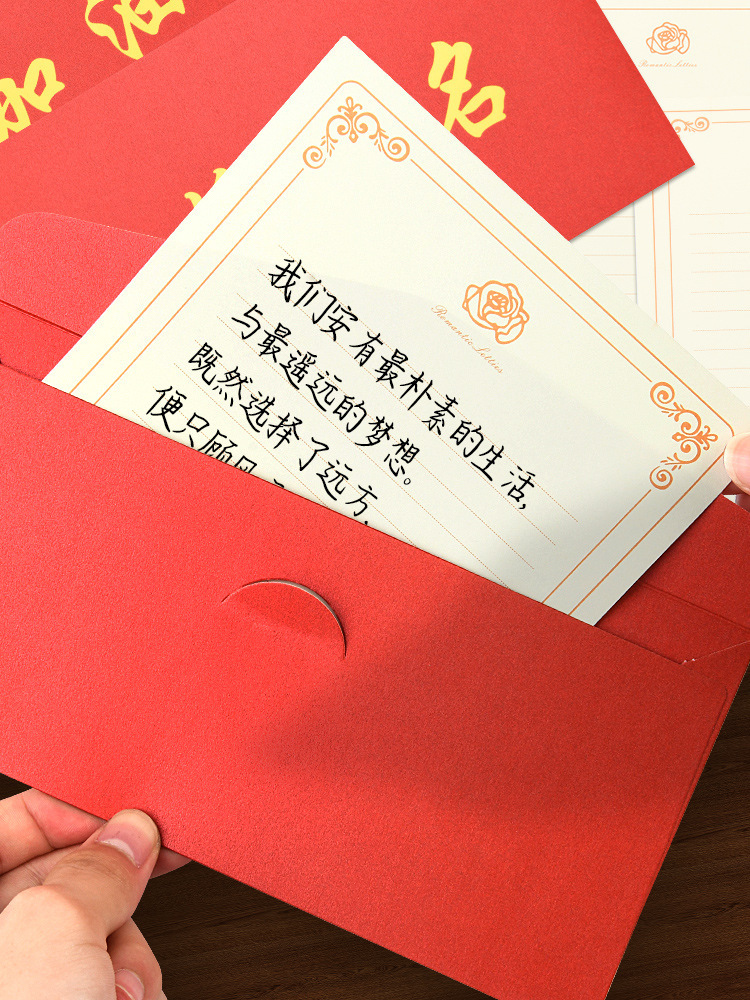 加油
名
Romantic Letters
Romantic Letters
我们安有最朴素的生活,
与最遥远的梦想。
既然选择了远方,
便只顾风